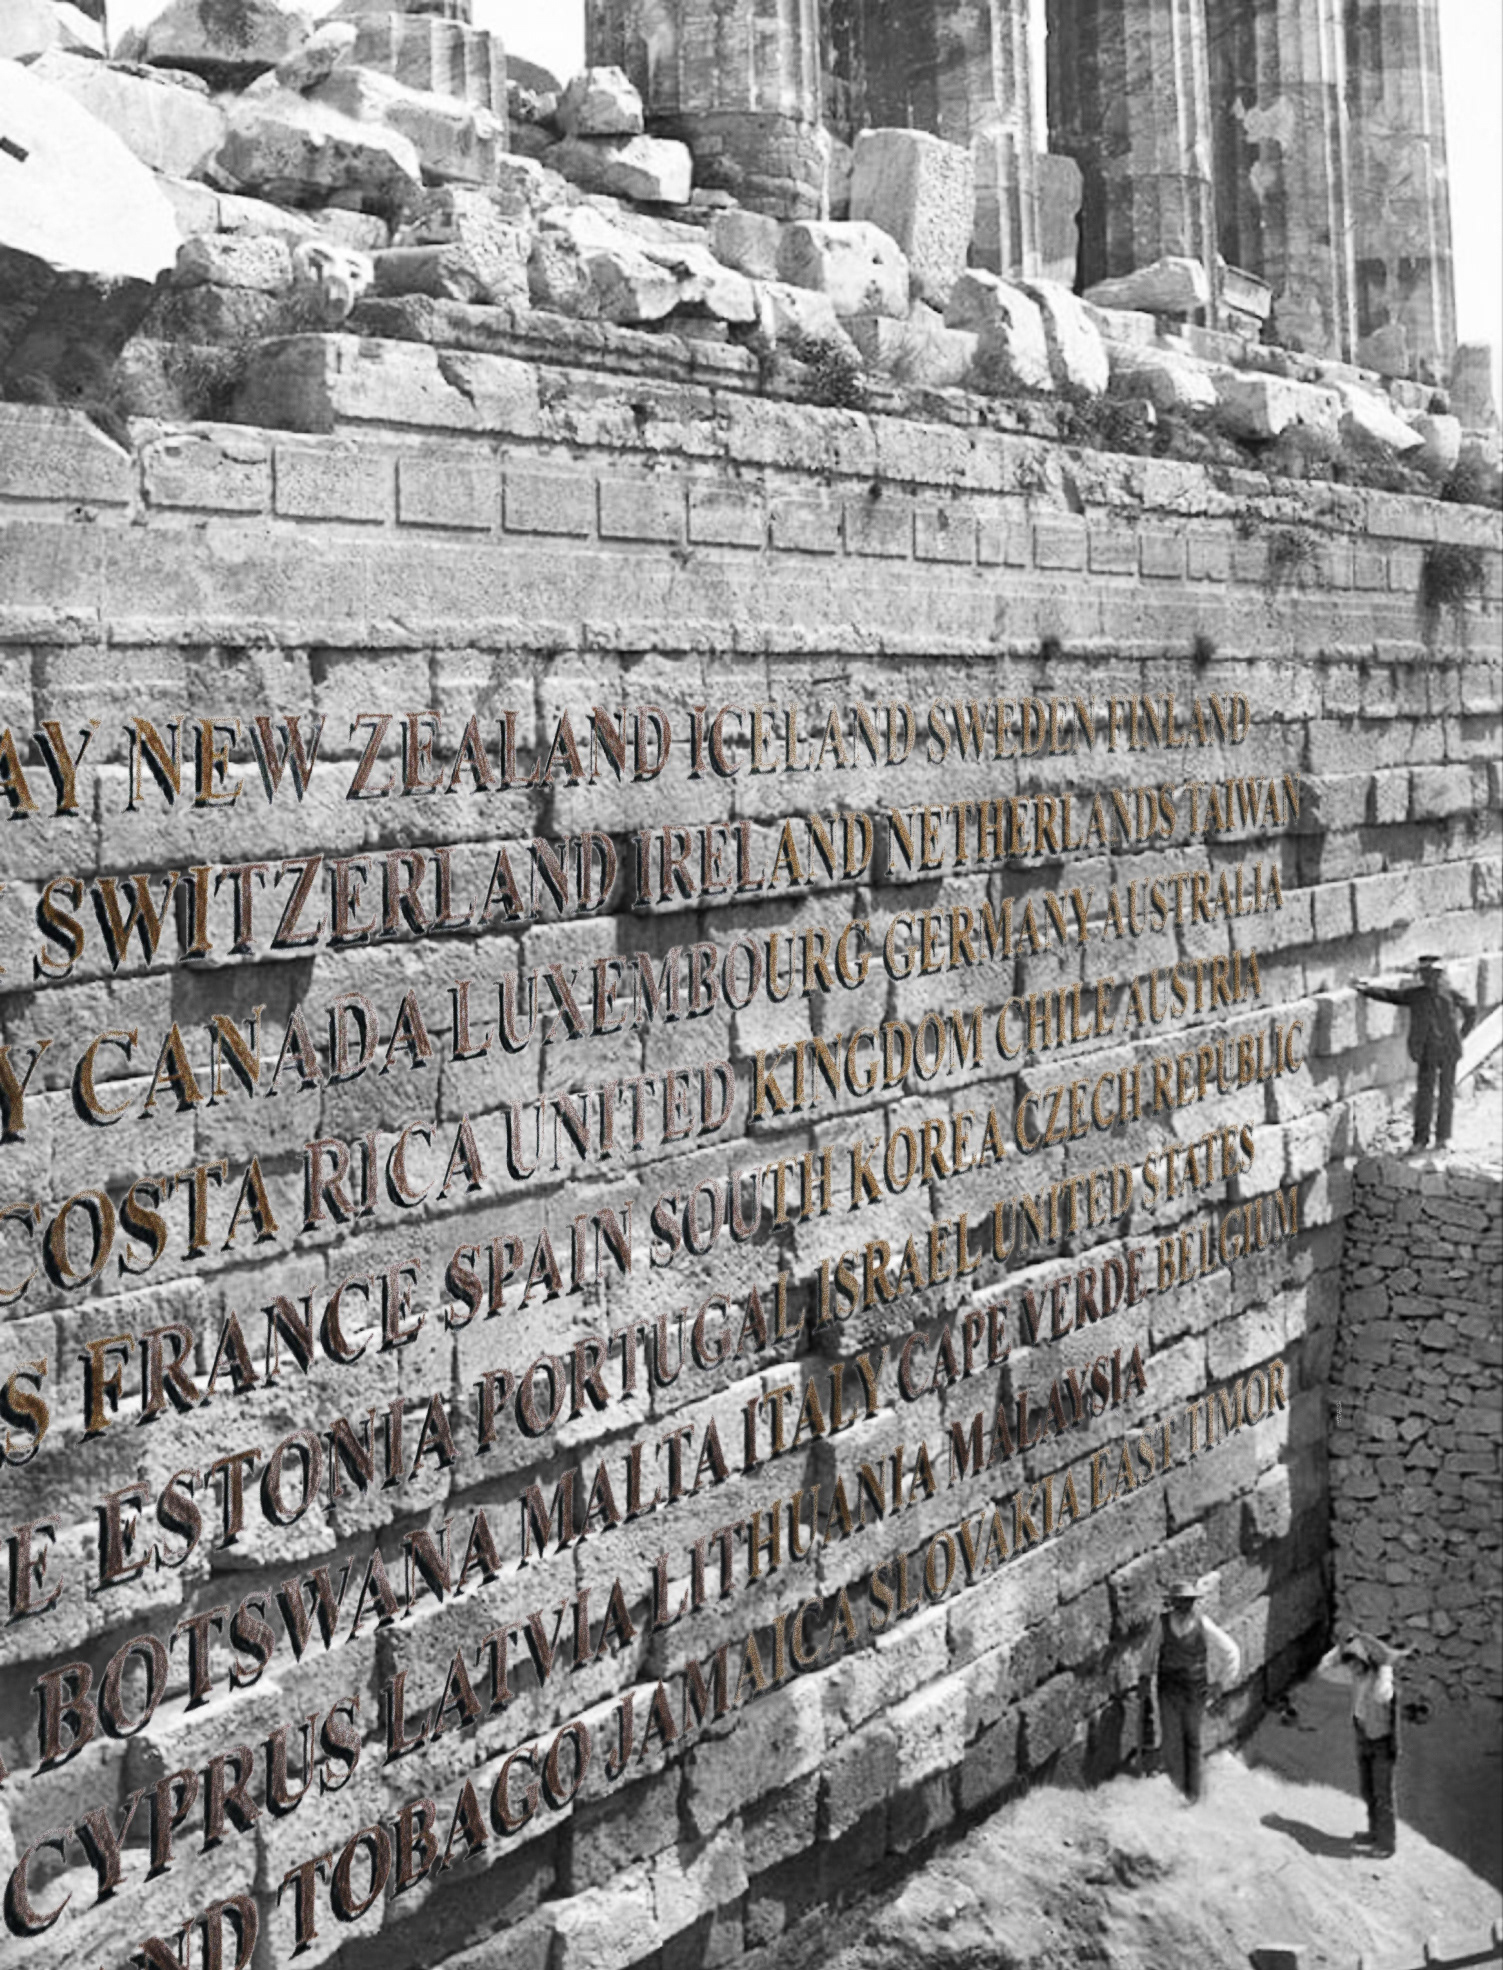 AY NEW ZEALAND ICELAND SWEDEN FINLAND
SWITZERLAND IRELAND NETHERLANDS TAIWAN
Y CANADA LUXEMBOURG GERMANY AUSTRALIA
COSTA RICA UNITED KINGDOM CHILE AUSTRIA
S FRANCE SPAIN SOUTH KOREA CZECH REPUBLIC
E ESTONIA PORTUGAL ISRAEL UNITED STATES
BOTSWANA MALTA ITALY CAPE VERDE BELGIUM
CYPRUS LATVIA LITHUANIA MALAYSIA
ND TOBAGO JAMAICA SLOVAKIA EAST TIMOR